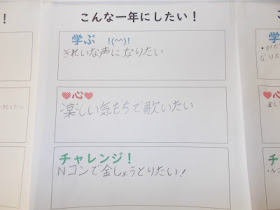 こんな一年にしたい！
学ぶ !(^^)!
きれいな声になりたい
♥心♥
楽しい気もちで歌いたい
チャレンジ！
Nコンで金しょうとりたい!